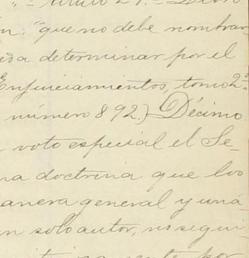 "que no debe nombrar
determinar por el
Enjuiciamientos, tomo 2º
número 892.) Décimo
voto especial el Se
na doctrina que los
anera general y una
n solo autor, no segui
por